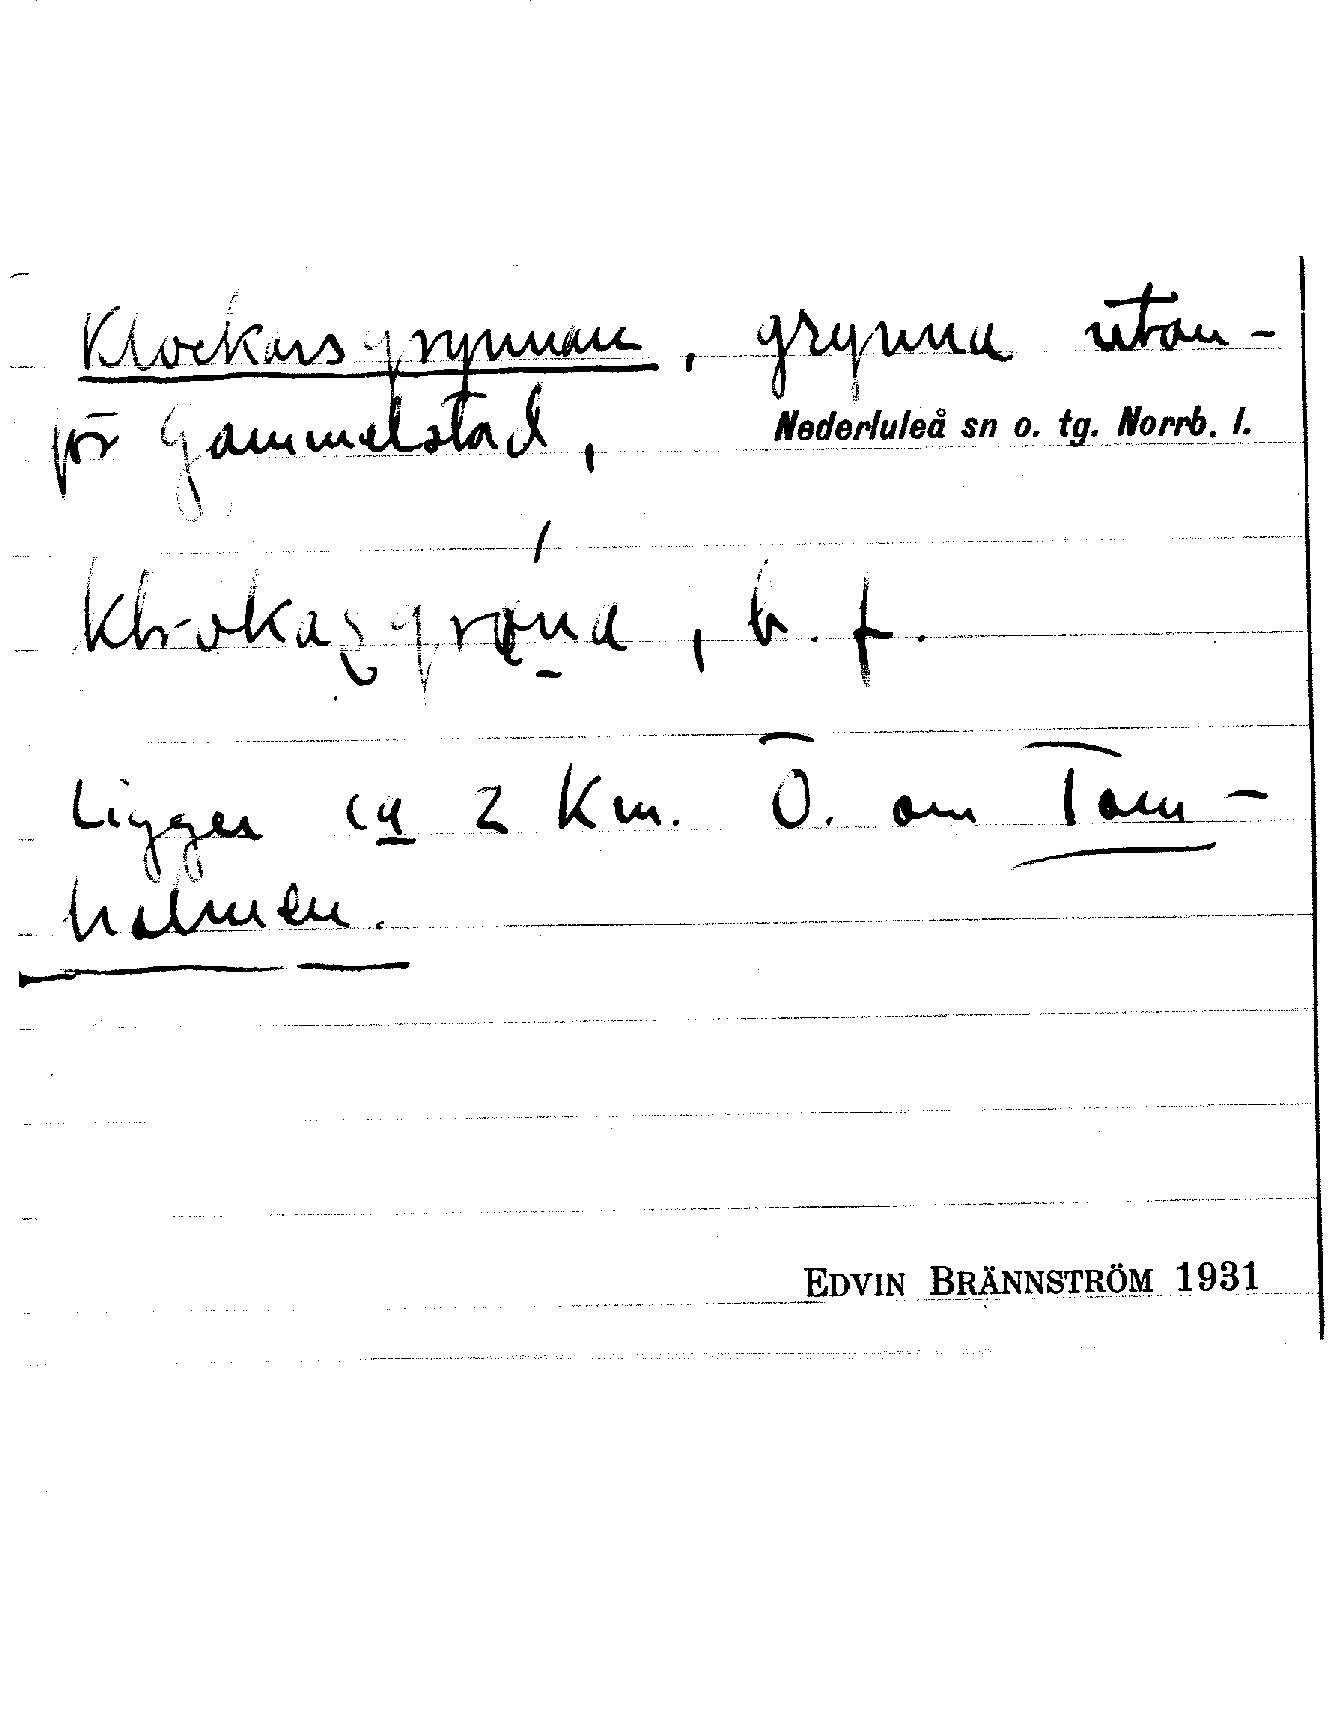 Klockarsgrynnan, grynna utan-
för Gammelstad, Nederluleå sn o. tg. Norrb. l.
b. f.
Ligger ca 2 km. Ö. om Tom-
holmen.
EDVIN BRÄNNSTRÖM 1931